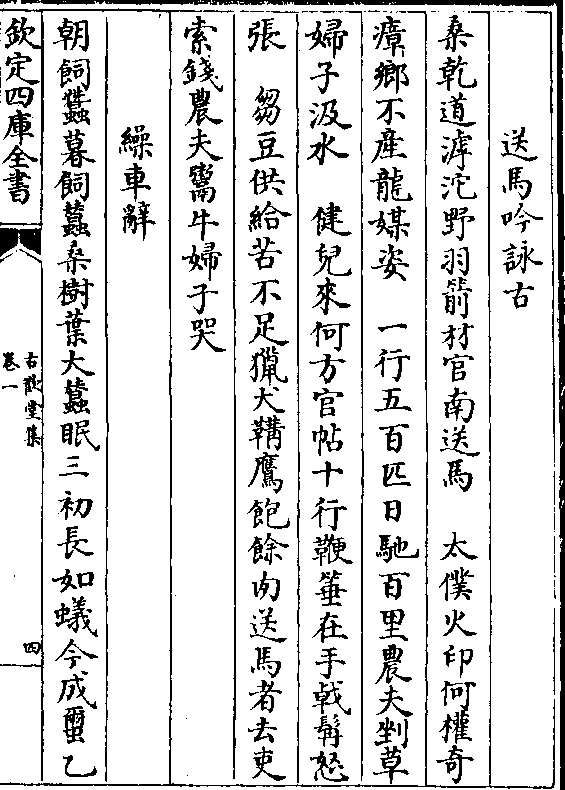 送馬吟詠古
桑乾道滹沱野羽箭材官南送馬　太僕火印何權奇
瘴鄉不產龍媒姿　一行五百匹日馳百里農夫剉草
婦子汲水　健兒來何方官帖十行鞭箠在手戟髯怒
張　芻豆供給苦不足獵犬鞲鷹飽餘肉送馬者去吏
索錢農夫鬻牛婦子哭
繰車辭
朝飼蠶暮飼蠶桑樹葉大蠶眠三初長如蟻今成璽乙
欽定四庫全書
古歡堂集
卷一
四